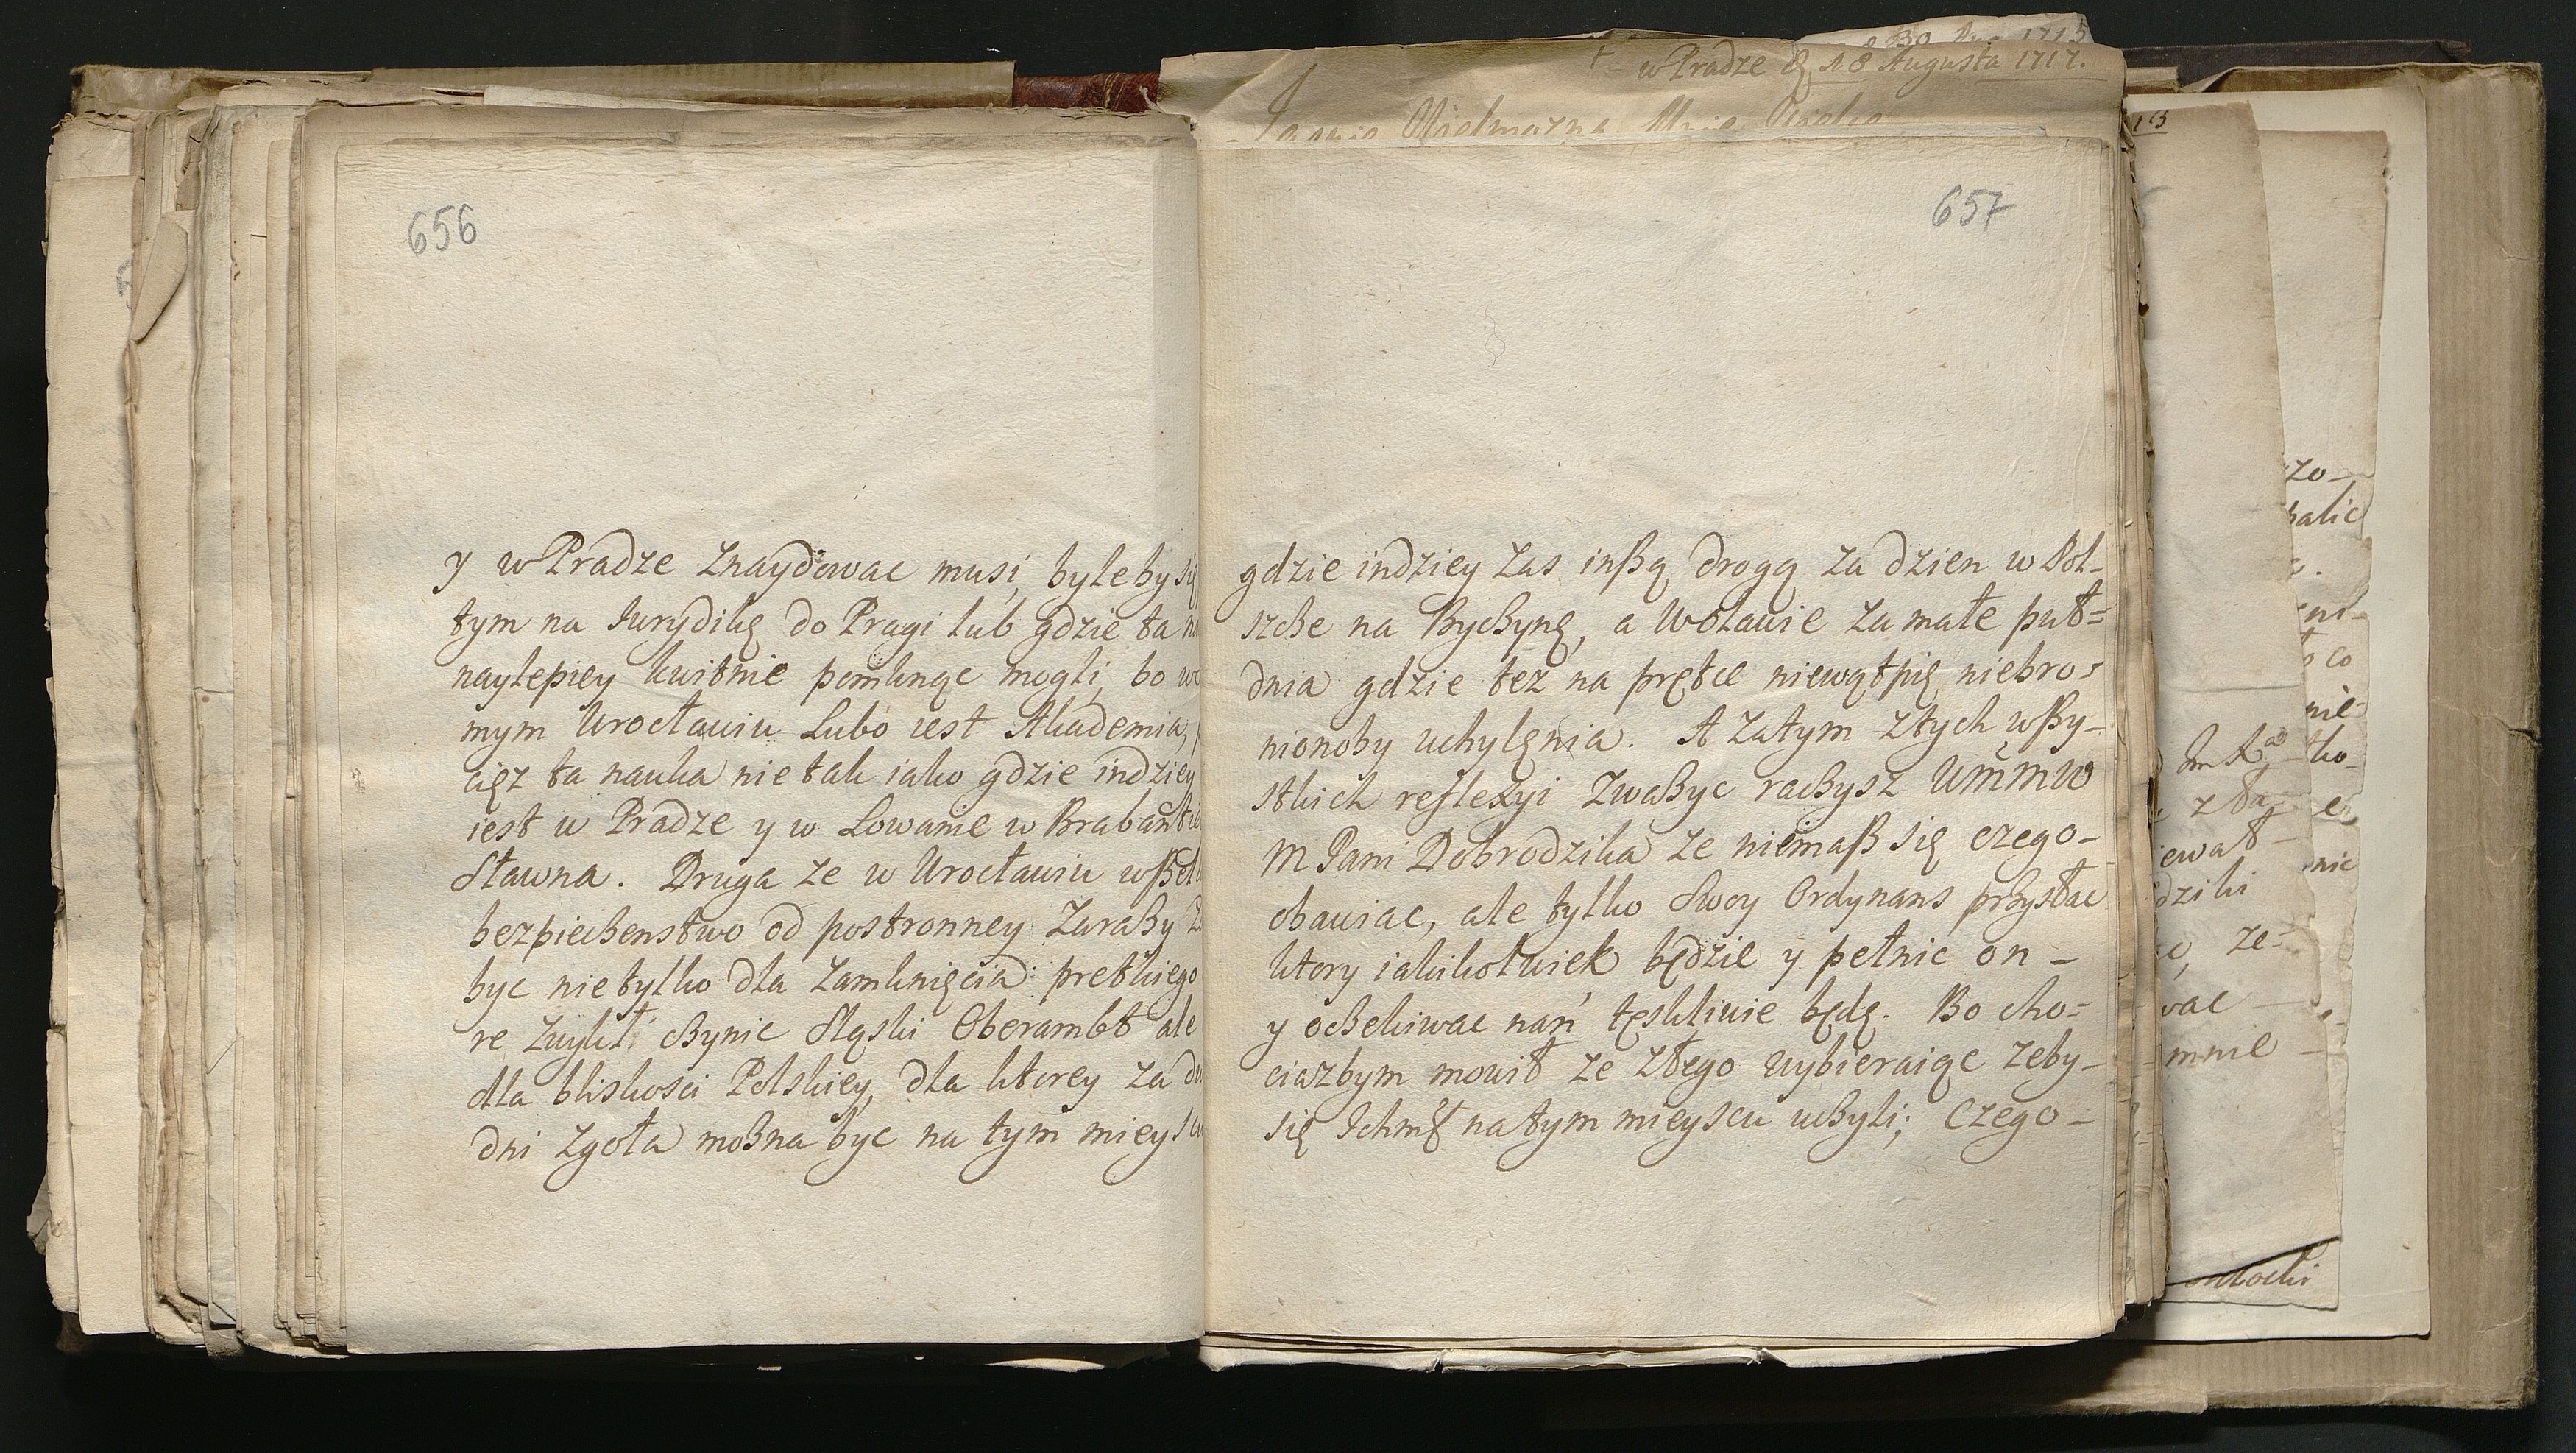 656
y w Pradze znaydowac musi, byleby się
tym na Jurydikę do Pragi lub gdzie ta na
naylepiey kwitnie pomknąc mogli, bo w
mym Wrocławiu Lubo iest Akademia,
cięz ta nauka nie tak iako gdzie indziey
iest w Pradze y w Lowanie w Brabanti
Sławna. Druga ze w Wrocławiu wßel
bezpieczenstwo od postronney Zarazy
byc nie tylko dla zamknięcia pretkiego
re zwykł czynic Sląski Oberambt ale
dla bliskosci Polskiey, dla ktorey za d
dni zgoła mozna byc na tym mieysc
w Pradze d. 18 Augusta 1717.
657
gdzie indziey zas inßą drogą za dzien w Pol-
szcze na Byczynę, a Wolawie za małe puł=
dnia gdzie tez na prętce niewątpię niebro-
nionoby uchylęnia. A zatym z tych wßy-
stkich reflexyi zwazyc raczysz WMMW
M Pani Dobrodzika ze niemaß się czego-
obawiac, ale tylko Swoy Ordynans przysłac
ktory iakikolwiek będzie y pełnic on -
y oczekiwac nań tęskliwie będę. Bo cho=
ciazbym mowił ze złego wybieraiąc zeby-
się Ichmść na tym mieyscu uczyli; Czego-